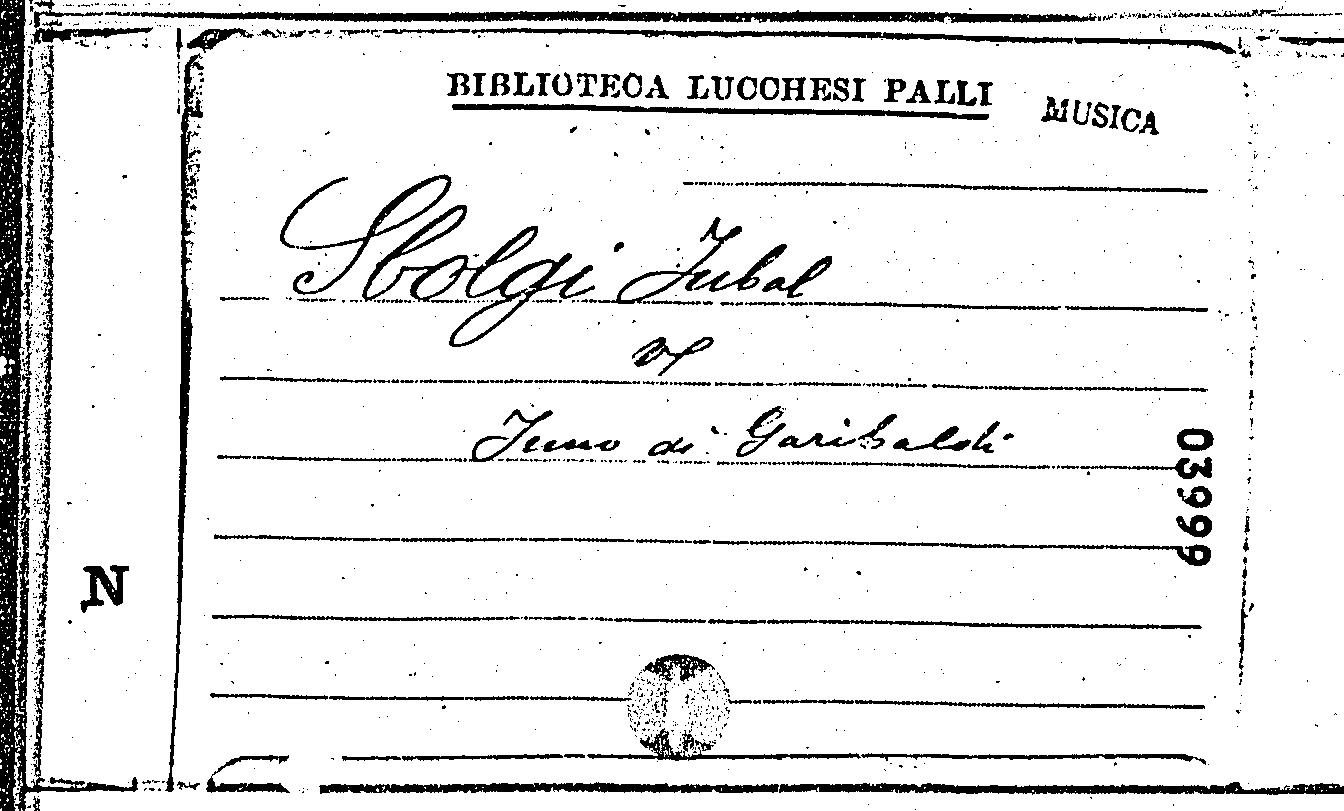 BIBLIOTECA LUCCHESI PALLI
MUSICA
Sbolgi Jubal
v/
Inno di Garibaldi
03999
N